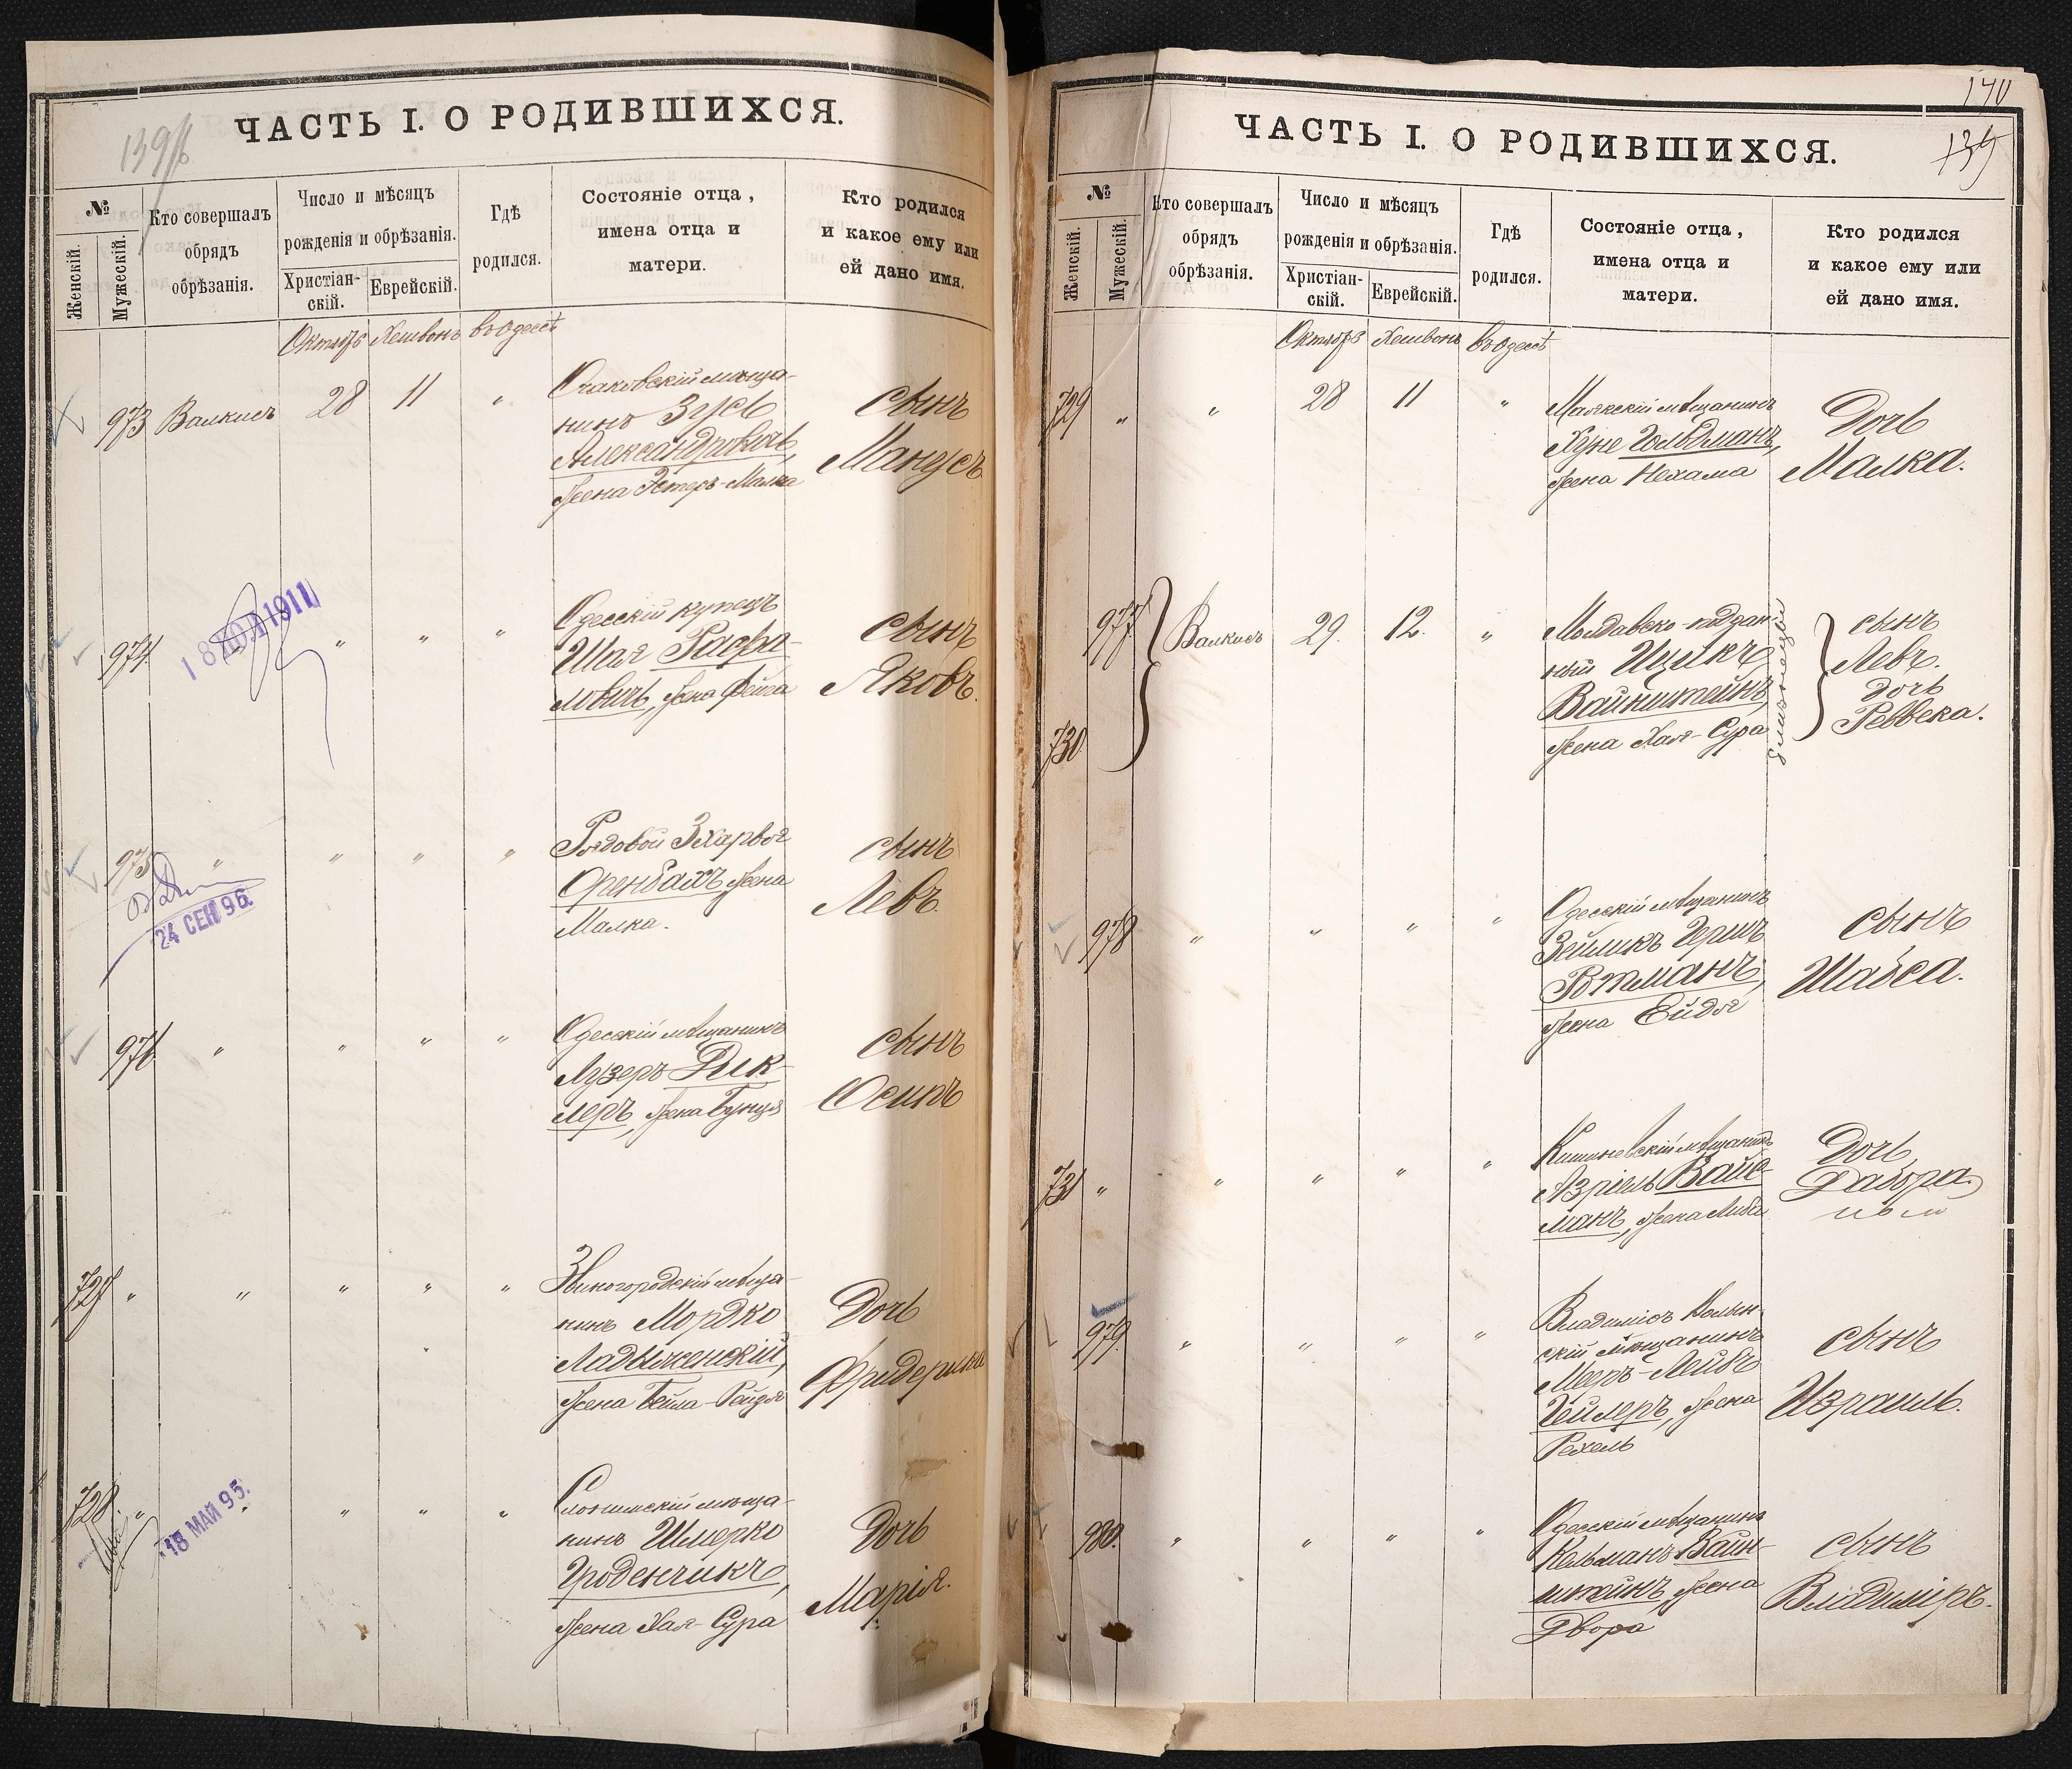 139б
ЧАСТЬ I. О РОДИВШИХСЯ.
№
Женскій.
Мужескій.
Кто совершалъ
обрядъ
обрѣзанія.
Число и мѣсяцъ
рожденія и обрѣзанія.
Христіан-
скій.
Еврейскій.
Гдѣ
родился.
Состояніе отца,
имена отца и
матери.
Кто родился
и какое ему или
ей дано имя.
Октябрь Хешвонъ въ Одессѣ
973 Валкисъ 28 11 "
Очаковскій мѣща-
нинъ Зусь
Александровичъ,
жена Эстеръ-Малка
сынъ
Манусъ
974. " " "
18 ІЮЛ 1911
Одесскій купецъ
Шая Рафа-
ловичъ, жена Фейга
сынъ
Яковъ.
975 " " " "
24 СЕН 96.
Рядовой
Оренбахъ жена
Малка.
сынъ
Левъ.
976 " " " "
Одесскій мѣщанинъ
Лузеръ Дик-
леръ, жена Бунця
сынъ
Осипъ
727 " " " " "
Звиногородскій мѣща-
нинъ Мордко
Ладыженскій,
жена Бейла-Рейзя
Дочь
Фридерика
728. " " " " "
18 МАЙ 95.
Слонимскій мѣща-
нинъ Шмерко
Гроденчикъ,
жена Хая-Сура
Дочь
Марія.
140
139
ЧАСТЬ I. О РОДИВШИХСЯ.
№
Женскій.
Мужескій.
Кто совершалъ
обрядъ
обрѣзанія.
Число и мѣсяцъ
рожденія и обрѣзанія.
Христіан-
скій.
Еврейскій.
Гдѣ
родился.
Состояніе отца,
имена отца и
матери.
Кто родился
и какое ему или
ей дано имя.
Октябрь Хешвонъ въ Одессѣ
729 " " 28 11 "
Маякскій мѣщанинъ
Хуне Гольдманъ,
жена Нехама
Дочь
Малка.
977 Валкисъ 29. 12. "
730
Молдавско-поддан-
ный Ицикъ
Вайнштейнъ
жена Хая-Сура
близнецы
сынъ
Левъ.
дочь
Ревека.
978 " " " "
Одесскій мѣщанинъ
Зейликъ Гершъ
Ротманъ,
жена Ейдя
сынъ
Шабса.
731 " " " " "
Кишиневскій мѣщанинъ
Азріель Вайс-
манъ, жена Либа
Дочь
Дабора
979. " " " "
Владиміръ Волын-
скій мѣщанинъ
Меер-Лейбъ
Гейлеръ, жена
Рехель
сынъ
Израиль.
980. " " " "
Одесскій мѣщанинъ
Кельманъ Вайн-
штейнъ, жена
Двора
сынъ
Владиміръ.